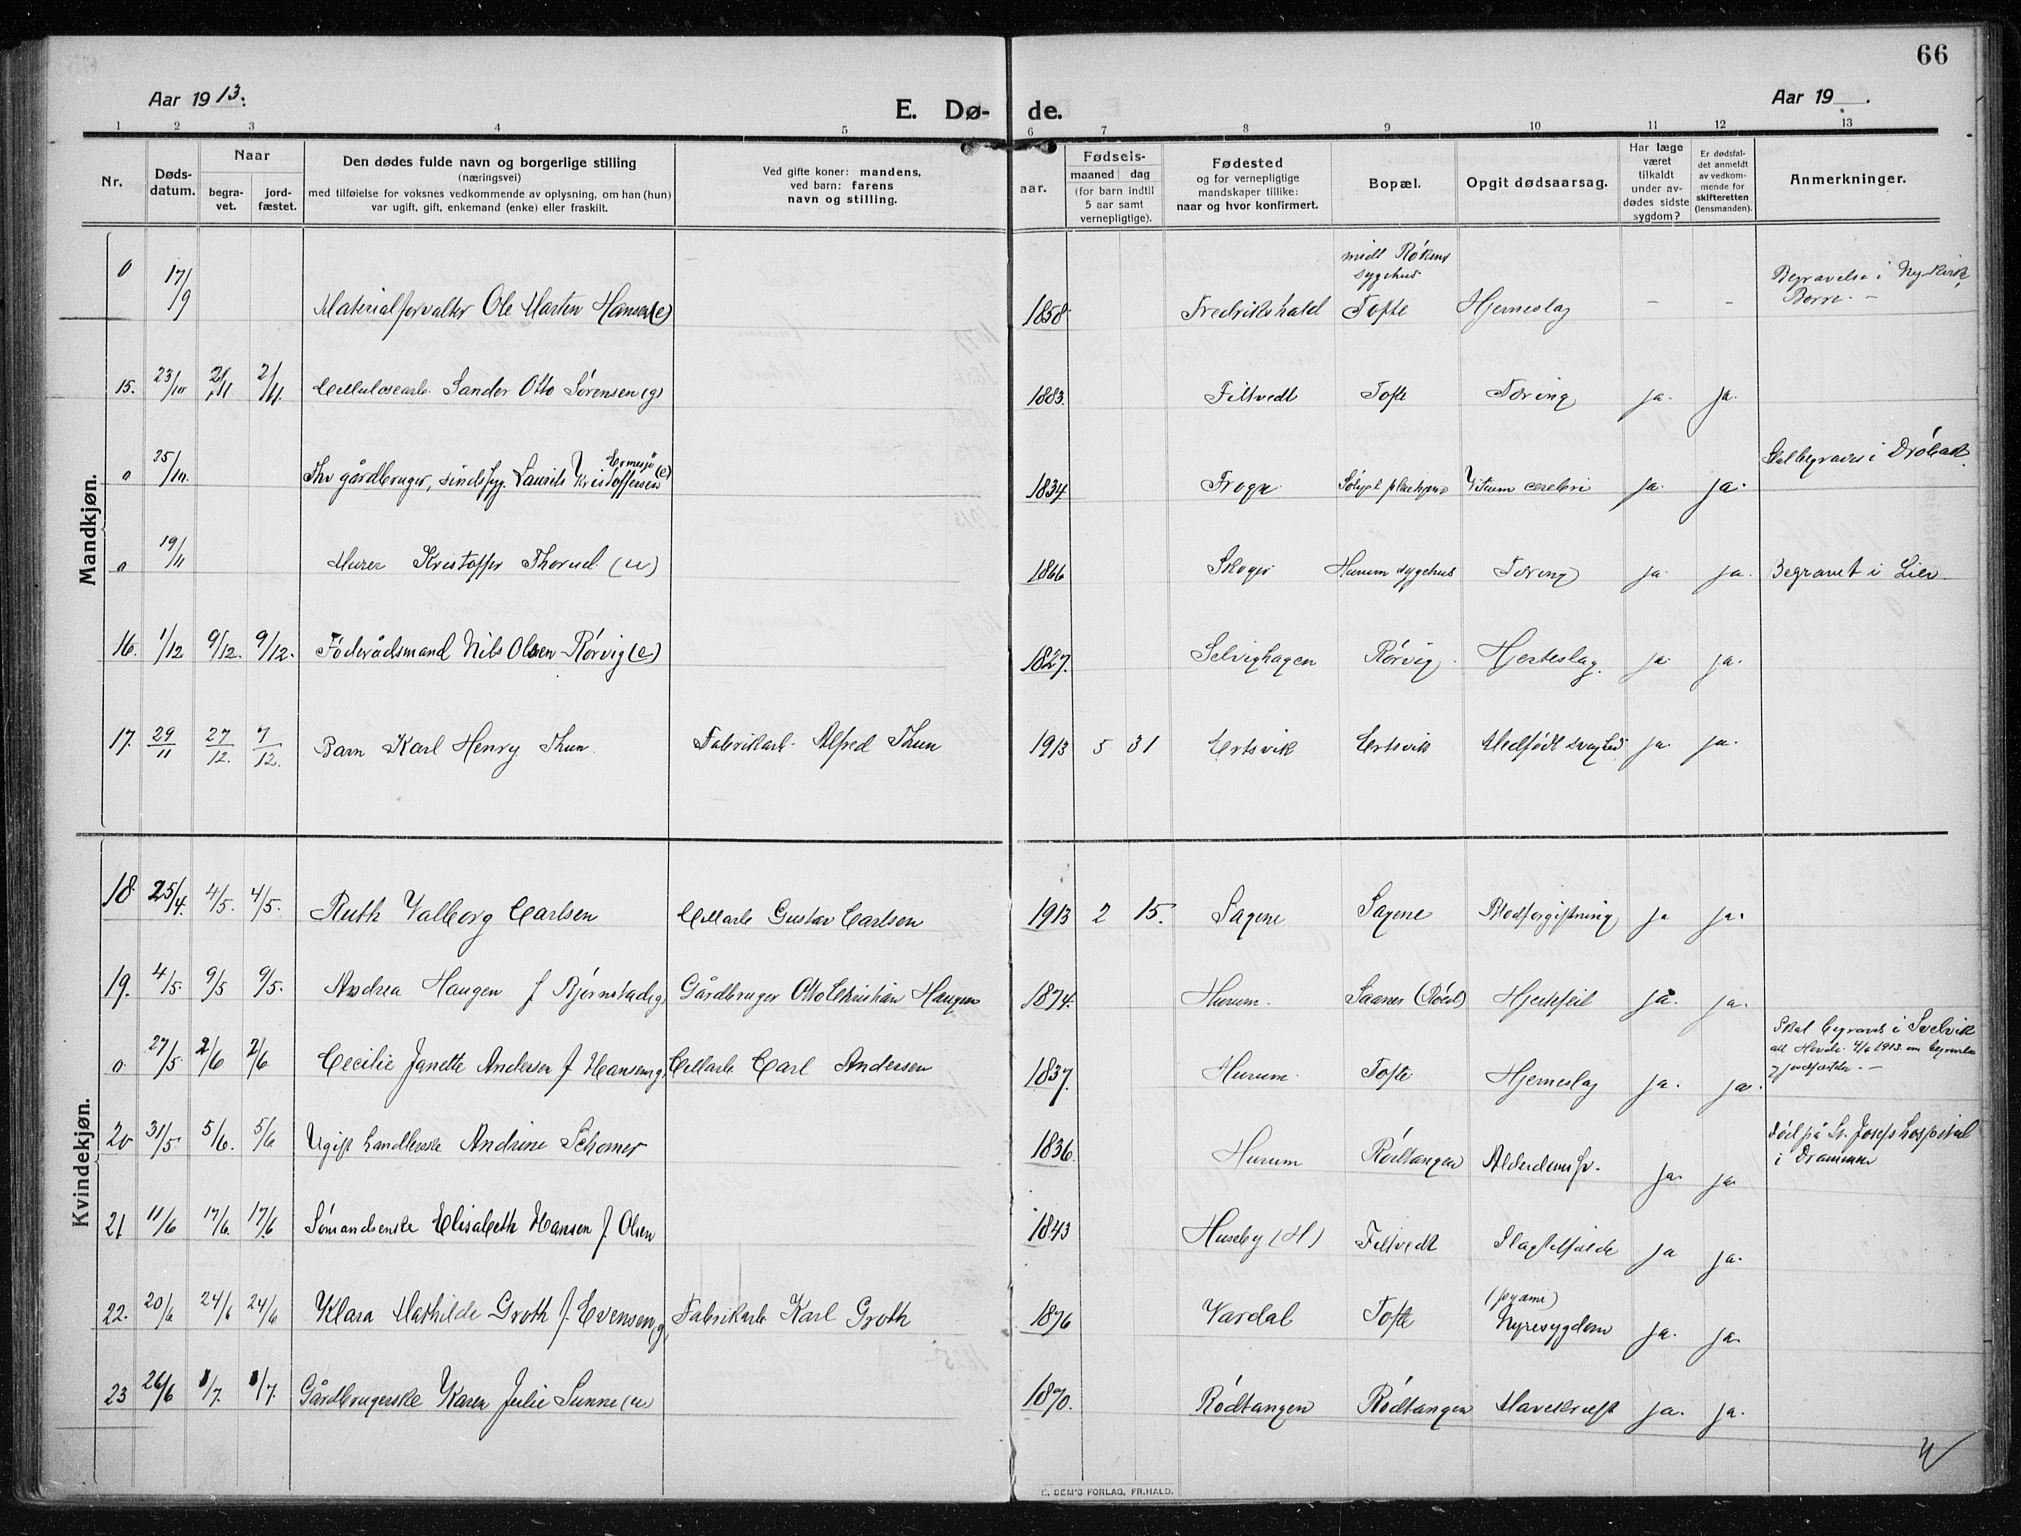 66
Aar 1913.
E. Dø- de.
Aar 19 .
1 2 3 4 5 6 7 8 9 10 11 12 13
Nr.
Døds-
datum.
Naar
begra-
vet.
jord-
fæstet.
Den dødes fulde navn og borgerlige stilling
(næringsvei)
med tilføielse for voksnes vedkommende av oplysning, om han (hun)
var ugift, gift, enkemand (enke) eller fraskilt.
Ved gifte koner: mandens,
ved barn: farens
navn og stilling.
aar.
Fødsels-
maaned dag
(for barn indtil
5 aar samt
vernepligtige).
Fødested
og for vernepligtige
mandskaper tillike:
naar og hvor konfirmert.
Bopæl.
Opgit dødsaarsag.
Har læge
været
tilkaldt
under av-
dødes sidste
sygdom?
Er dødsfal-
det anmeldt
av vedkom-
mende for
skifteretten
(lensmanden).
Anmerkninger.
Mandkjøn.
0 17/9 Materialforvalter Ole Marten Hansen (e) 1858. Fredrikshald midl Røkens sygehus Tofte Hjerneslag - - Begravelse i Nykirke, Borre. -
15. 23/10 2/11 2/11. Cellulosearb. Sander Otto Sørensen (g) 1883. Filtvedt Tofte Tæring ja. ja.
0 25/10. Fhv gårdbruger, sindssyg. Laurits Kristoffersen Ermesjø (e) 1834. Frogn Vitium cerebri ja. ja. Skal begraves i Drøbak.
0 19/11 Murer Kristoffer Thorud (u) 1866 Skoger Hurum sygehus Tæring ja. ja. Begravet i Lier
16. 1/12 9/12. 9/12. Føderådsmand Nils Olsen Rørvig (e) 1827. Selvighagen Rørvig. Hjerteslag. ja. ja.
17. 29/11 27/12. 7/12. Barn Karl Henry Thun. Fabrikarb. Alfred Thun 1913 5 31 Ertsvik Ertsvik Medfødt svaghed ja. ja.
Kvindekjøn.
18. 25/4. 4/5. 4/5. Ruth Valborg Carlsen Cellarb Gustav Carlsen 1913 2 15. Sagene Sagene Blodforgiftning ja ja.
19. 4/5. 9/5 9/5. Andrea Haugen f Bjørnstad g) Gårdbruger Otto Christian Haugen 1874. Hurum. Saaner (Røed) Hjertefeil ja. ja.
0. 27/5 2/6 2/6 Cecilie Janette Andersen f Hansen g) Cellarb Carl Andersen 1837. Hurum. Tofte Hjerneslag ja. ja. Skal begraves i Svelvik
20 31/5. 5/6. 5/6 Ugift Andrine Schomer 1836. Hurum Rødtangen ja. ja. Død på St. Josefs hospital i Drammen
21 11/6 17/6. 17/6 Sømandsenke Elisabeth Hansen f. Olsen 1843 Huseby (H) Filtvedt Slagtilfælde ja ja.
22. 20/6 24/6 24/6 Klara Mathilde Groth f. Evensen g) Fabrikarb Karl Groth 1876 Vardal Tofte (pyæmi) Nyresygdom ja. ja.
23 26/6 8/7. 8/7. Gårdbrugerske Karen Julie Sunne (u) 1870. Rødtangen Rødtangen Mavekræft ja. ja.
E. SEM'S FORLAG, FR.HALD.